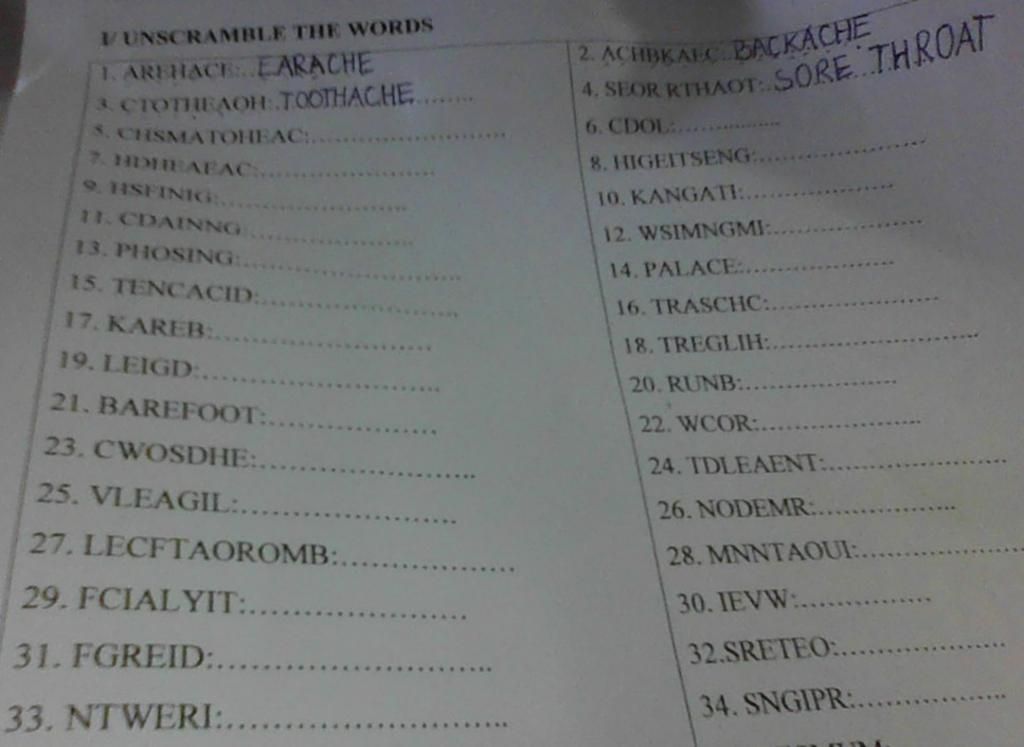 I/ UNSCRAMBLE THE WORDS
1. AREHACE:..EARACHE
2. ACHBKAEC..BACKACHE
3. CTOTHEAOH:.TOOTHACHE.........
4. SEOR RTHAOT:..SORE...THROAT
5. CHSMATOHEAC:..............................
6. CDOL:..................
7. HDHEAEAC:...........................
8. HIGEITSENG:..........................
9. HSFINIG:..............................
10. KANGATI:......................
11. CDAINNG:..........................
12. WSIMNGMI:......................
13. PHOSING:.................................
14. PALACE:......................
15. TENCACID:.............................
16. TRASCHC:..........................
17. KAREB:................................
18. TREGLIH:................................
19. LEIGD:...................................
20. RUNB:.......................
21. BAREFOOT:.........................
22. WCOR:.......................
23. CWOSDHE:...............................
24. TDLEAENT:..........................
25. VLEAGIL:..............................
26. NODEMR:....................
27. LECFTAOROMB:.........................
28. MNNTAOUI:......................
29. FCIALYIT:..............................
30. IEVW:...................
31. FGREID:......................................
32.SRETEO:.......................
33. NTWERI:.......................................
34. SNGIPR:.....................